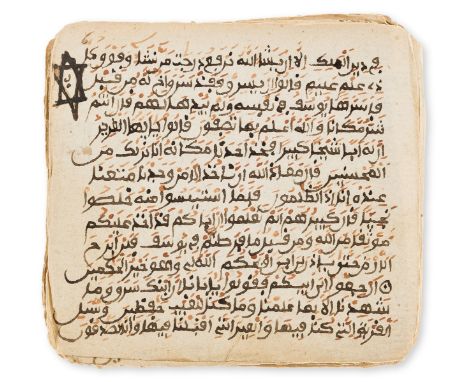 في دين الملك إلا أن يشاء الله نرفع درجت من نشاء وفوق كل
ذي علم عليم قالوا إن يسرق فقد سرق أخ له من قبل
فأسرها يوسف في نفسه ولم يبدها لهم قال أنتم
شر مكانا والله أعلم بما تصفون قالوا يأيها العزيز
إن له أبا شيخا كبيرا فخذ أحدنا مكانه إنا نريك من
المحسنين قال معاذ الله أن نأخذ إلا من وجدنا متعنا
عنده إنا إذا لظلمون فلما استيئسوا منه خلصوا
نجيا قال كبيرهم ألم تعلموا أن أباكم قد أخذ عليكم
موثقا من الله ومن قبل ما فرطتم في يوسف فلن أبرح
الأرض حتى يأذن لي أبي أو يحكم الله لي وهو خير الحكمين
ارجعوا إلى أبيكم فقولوا يأبانا إن ابنك سرق وما
شهدنا إلا بما علمنا وما كنا للغيب حفظين وسئل
القرية التي كنا فيها والعير التي أقبلنا فيها وإنا لصدقون